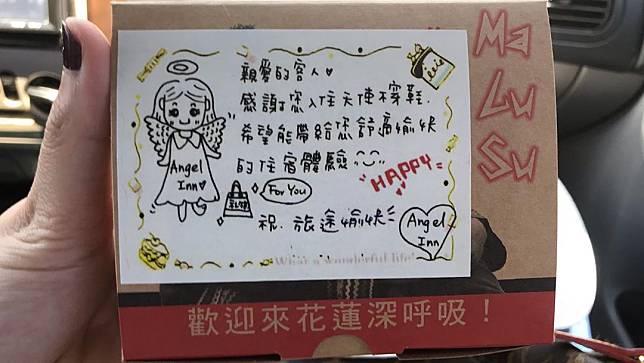 親愛的客人♥
感謝您入住天使不穿鞋.
希望能帶給您舒適愉快
的住宿體驗
"HAPPY"
Angel
Inn♥
For You
祝.旅途愉快
Angel
Inn
What a wonderful life!
Ma
Lu
Su
歡迎來花蓮深呼吸！